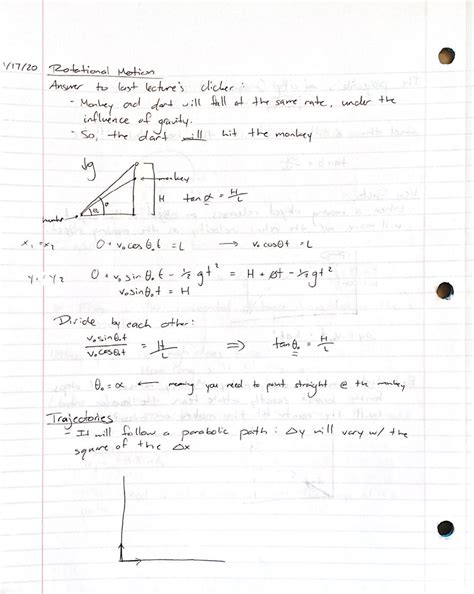 1/17/20 Rotational Motion
Answer to last lecture's clicker:
- Monkey and dart will fall at the same rate, under the
influence of gravity.
- So, the dart will hit the monkey
↓g
monkey
H tan α = H/L
θ
x₁ = x₂ 0 + v₀ cos θ₀ t = L → v₀ cosθt = L
y₁ = y₂ 0 + v₀ sin θ₀ t - ½ gt² = H + 0t - ½ gt²
v₀ sinθ₀t = H
Divide by each other:
v₀ sinθ₀t / v₀ cosθ₀t = H/L ⇒ tan θ₀ = H/L
θ₀ = α ← meaning you need to point straight @ the monkey
Trajectories
- It will follow a parabolic path: Δy will vary w/ the
square of the Δx